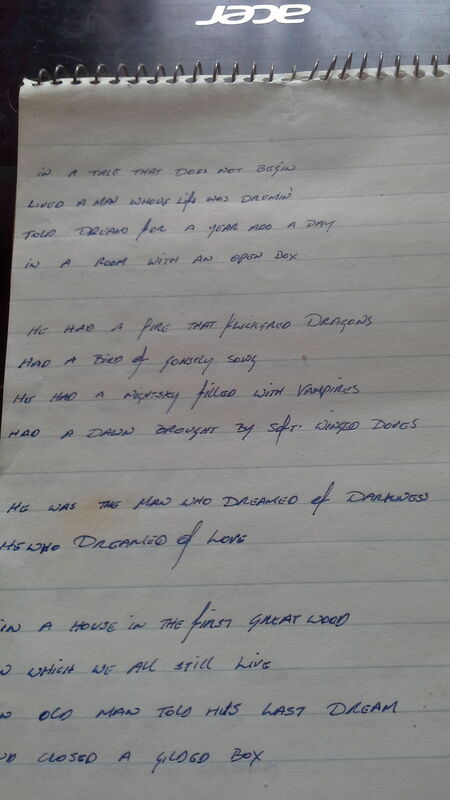 acer
IN A TALE THAT DOES NOT BEGIN
LIVED A MAN WHOUS LIFE WAS DREMIN'
TOLD DREAMS FOR A YEAR ADD A DAY
IN A ROOM WITH AN OPEN BOX
HE HAD A FIRE THAT FLICKERED DRAGONS
HAD A BIRD OF SONG
HE HAD A NIGHTSKY FILLED WITH VAMPIRES
HAD A DAWN BROUGHT BY SOFT. WINGED DOVES
HE WAS THE MAN WHO DREAMED OF DARKNESS
HE WHO DREAMED OF LOVE
IN A HOUSE IN THE FIRST GREAT WOOD
N WHICH WE ALL STILL LIVE
N OLD MAN TOLD HIS LAST DREAM
ND CLOSED A GILDED BOX